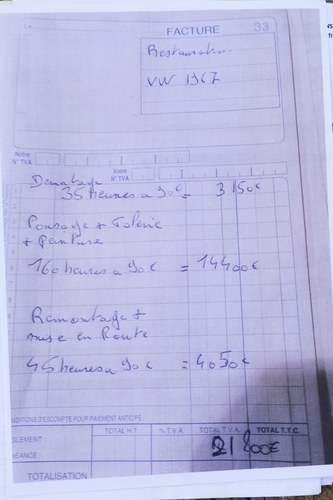 FACTURE 33
Restauration
VW 1967
Votre
N° TVA
Notre
N° TVA
Demontage
35 heures a 90€ = 3150€
Poncage + Tolerie
+ Peinture
160 heures a 90€ = 14400€
Remontage +
mise en Route
45 heures a 90€ = 4050€
CONDITIONS D'ESCOMPTE POUR PAIEMENT ANTICIPÉ
TOTAL H.T. N.T.V.A. TOTAL T.V.A. TOTAL T.T.C.
GLEMENT :
ÉANCE :
TOTALISATION